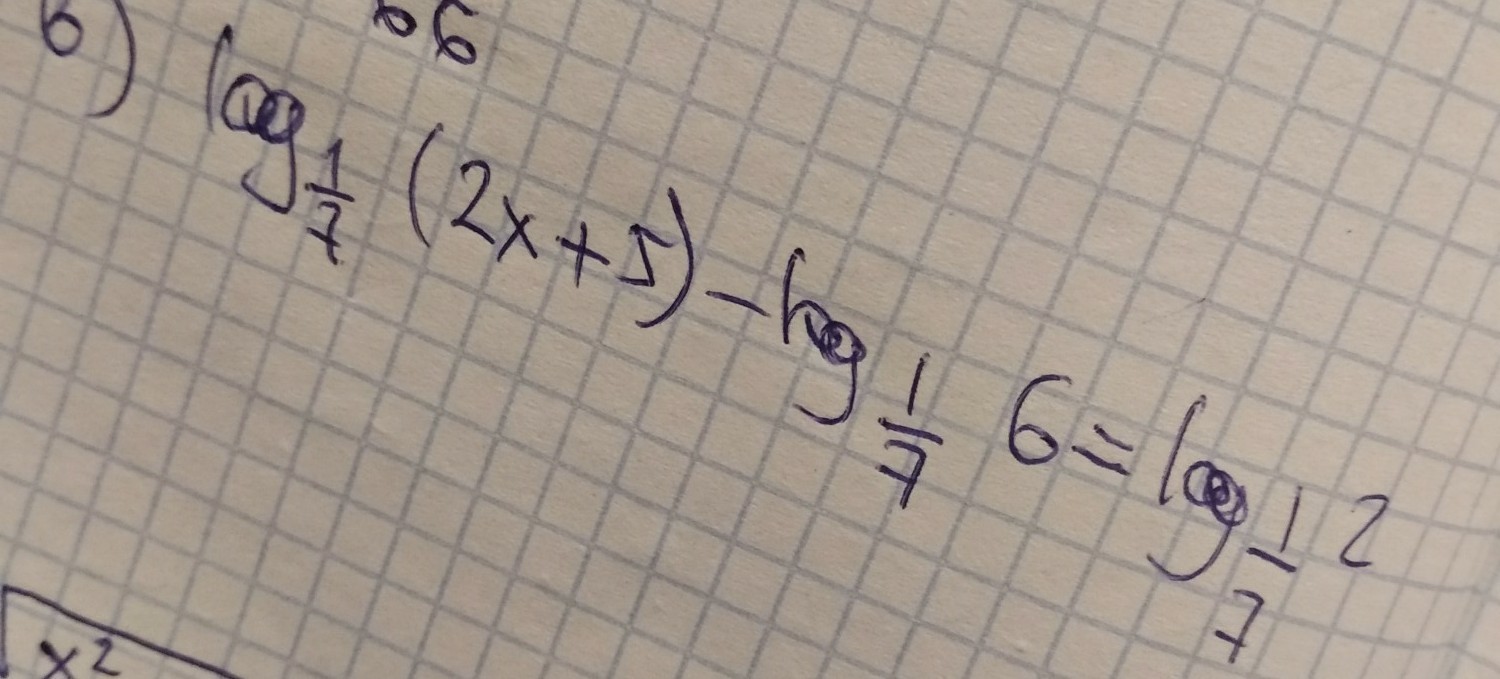 б) log_{1/7} (2x+5) - log_{1/7} 6 = log_{1/7} 2
x²